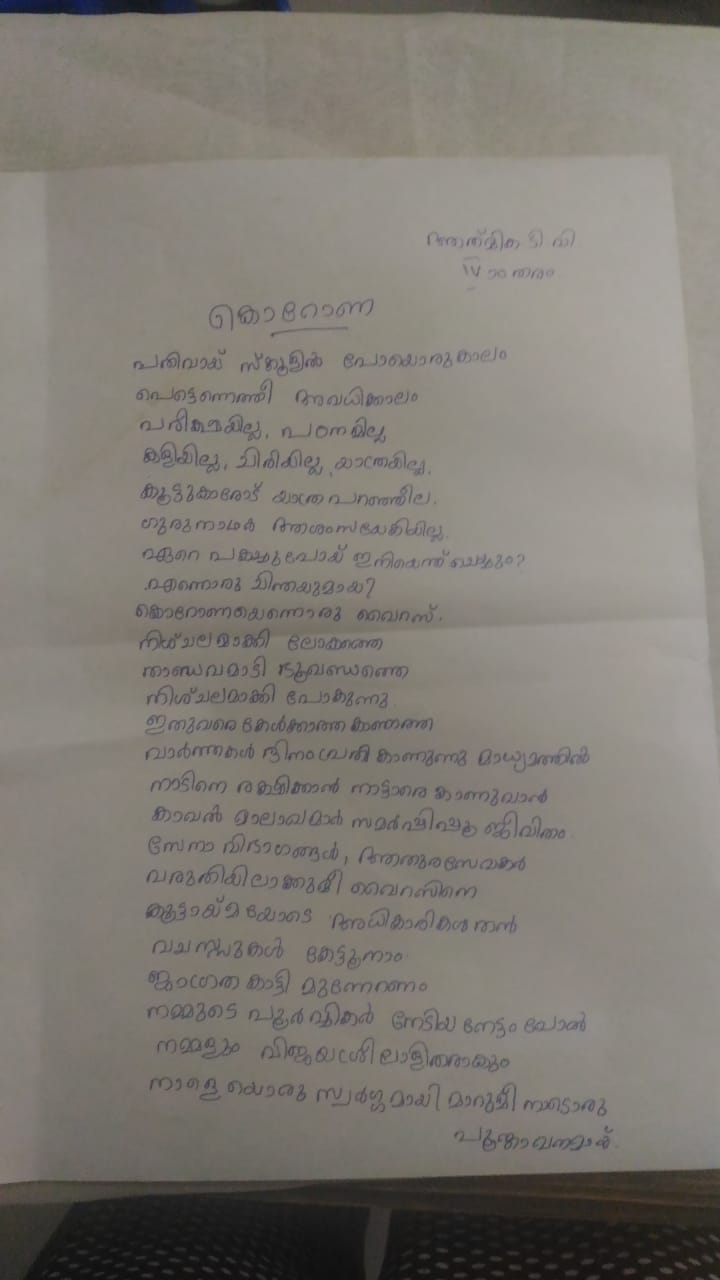 ആത്മിക ടി വി
IV ാം തരം
കൊറോണ
പതിവായ് സ്കൂളിൽ പോയൊരുകാലം
പെട്ടെന്നെത്തി അവധിക്കാലം
പരീക്ഷയില്ല, പഠനമില്ല
കളിയില്ല, ചിരിയില്ല, യാത്രയില്ല,
കൂട്ടുകാരോട് യാത്ര പറഞ്ഞീല.
ഗുരുനാഥർ ആശംസയേകിയില്ല.
ഏറെ പകച്ചുപോയ് ഇനിയെന്ത് ചെയ്യും?
എന്നൊരു ചിന്തയുമായ്?
കൊറോണയെന്നൊരു വൈറസ്.
നിശ്ചലമാക്കി ലോകത്തെ
താണ്ഡവമാട്ടി ഭൂഖണ്ഡത്തെ
നിശ്ചലമാക്കി പോകുന്നു.
ഇതുവരെ കേൾക്കാത്ത കാണാത്ത
വാർത്തകൾ ദിനംപ്രതി കാണുന്നു മാധ്യമത്തിൽ
നാടിനെ രക്ഷിക്കാൻ നാട്ടാരെ കാണുവാൻ
കാവൽ മാലാഖമാർ സമർപ്പിച്ചു ജീവിതം.
സേനാ വിഭാഗങ്ങൾ, ആതുരസേവകർ
വരുതിയിലാക്കുമീ വൈറസിനെ
കൂട്ടായ്മയോടെ അധികാരികൾ തൻ
വചനങ്ങൾ കേട്ടൂനാം
ജാഗ്രത കാട്ടി മുന്നേറണം
നമ്മുടെ പൂർവ്വികർ നേടിയ നേട്ടം പോൽ
നമ്മളും വിജയശ്രീലാളിതരാകും
നാളെയൊരു സ്വർഗ്ഗമായി മാറുമീ നാടൊരു
പൂങ്കാവനമായ്.